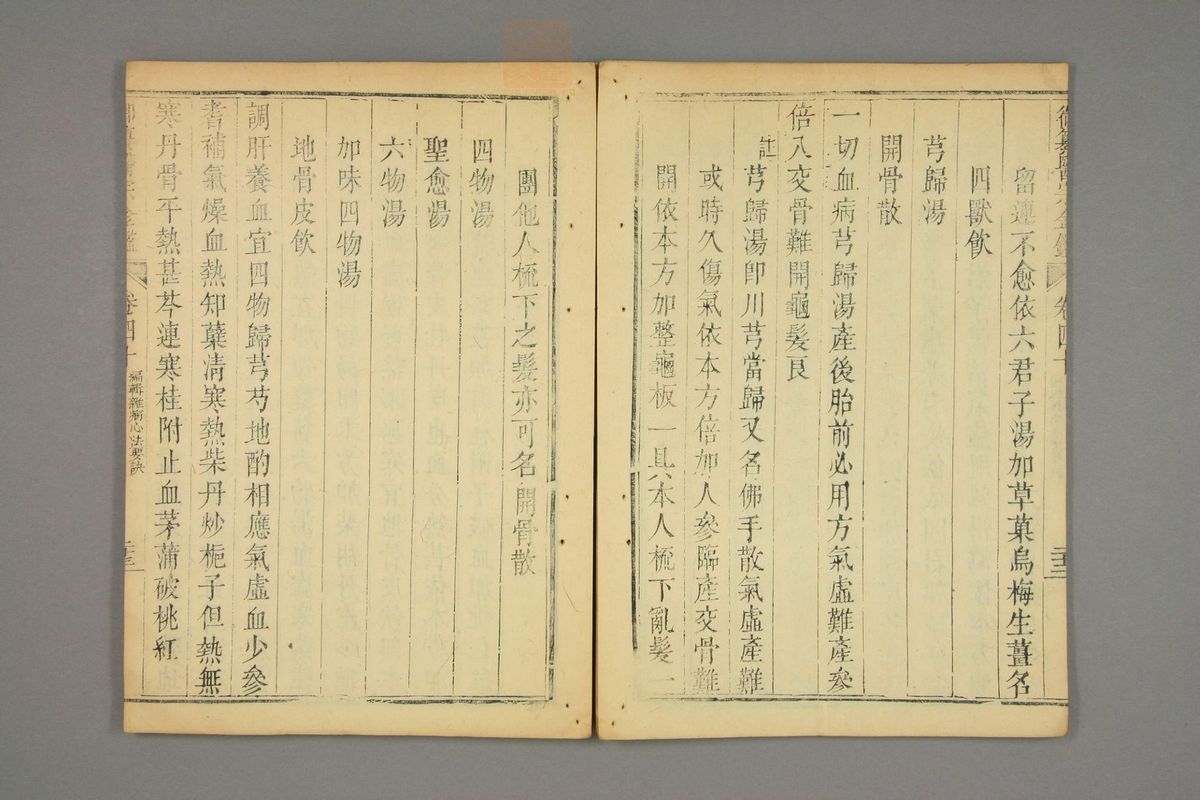 御纂醫宗金鑑 卷四十 二十二
留連不愈依六君子湯加草菓烏梅生薑名
四獸飲
芎歸湯
開骨散
一切血病芎歸湯產後胎前必用方氣虛難產參
倍入交骨難開龜髮良
註芎歸湯即川芎當歸又名佛手散氣虛產難
或時久傷氣依本方倍加人參臨產交骨難
開依本方加整龜板一具本人梳下亂髮一
團他人梳下之髮亦可名開骨散
四物湯
聖愈湯
六物湯
加味四物湯
地骨皮飲
調肝養血宜四物歸芎芍地酌相應氣虛血少參
耆補氣燥血熱知蘗清寒熱柴丹炒梔子但熱無
寒丹骨平熱甚芩連寒桂附止血茅蒲破桃紅
卷四十 編輯雜病心法要訣